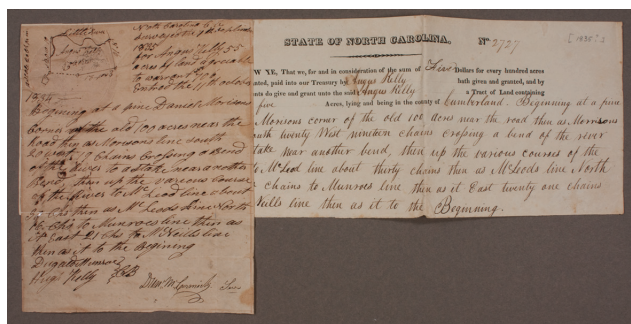 North Carolina
Surveyed the 9th
1825
for Angus Kelly 55
acres of land agreeable
to warrant No
Entred the 11th October
Little River
Angus Kelly
55 acres
1824
Begining at a pine Daniel Morisons
Corner of the old 100 acres near the
Road then as Morisons line south
20 West 19 Chains Crossing a Bend
of the River to a stake near another
Bend then up the various courses
of the River to McLeod line about
30 Chs then as McLeods line North
Chs to Munroes line then as
it East 21 Chs to McNeills line
then as it to the Begining
Dugald Munroe
Hugh Kelly CB
[1835?]
STATE OF NORTH CAROLINA,
No 2727
W YE, That we, for and in consideration of the sum of Five Dollars for every hundred acres
nted, paid into our Treasury by Angus Kelly have given and granted, and by
nts do give and grant unto the said Angus Kelly a Tract of Land containing
five Acres, lying and being in the county of Cumberland. Beginning at a pine
Monsons corner of the old 100 acres near the road then as Monsons
outh twenty West nineteen chains Crossing a bend of the river
take near another bend, then up the various courses of the
to McLeod line about thirty chains then as McLeods line North
chains to Munroes line then as it East twenty one chains
Neills line then as it to the Beginning.